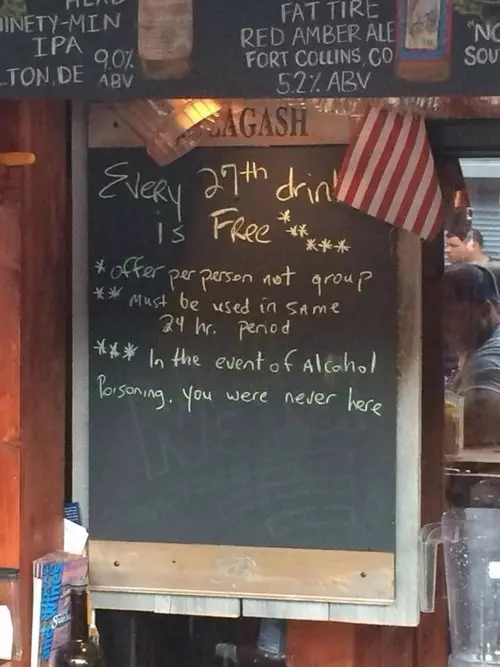 NINETY-MIN
IPA
9.0%
ABV
FAT TIRE
RED AMBER ALE
FORT COLLINS, CO
5.2% ABV
Every 27th
is Free * ** ***
* offer per person not group
** Must be used in SAME
24 hr. period
*** In the event of Alcohol
Poisoning, you were never here